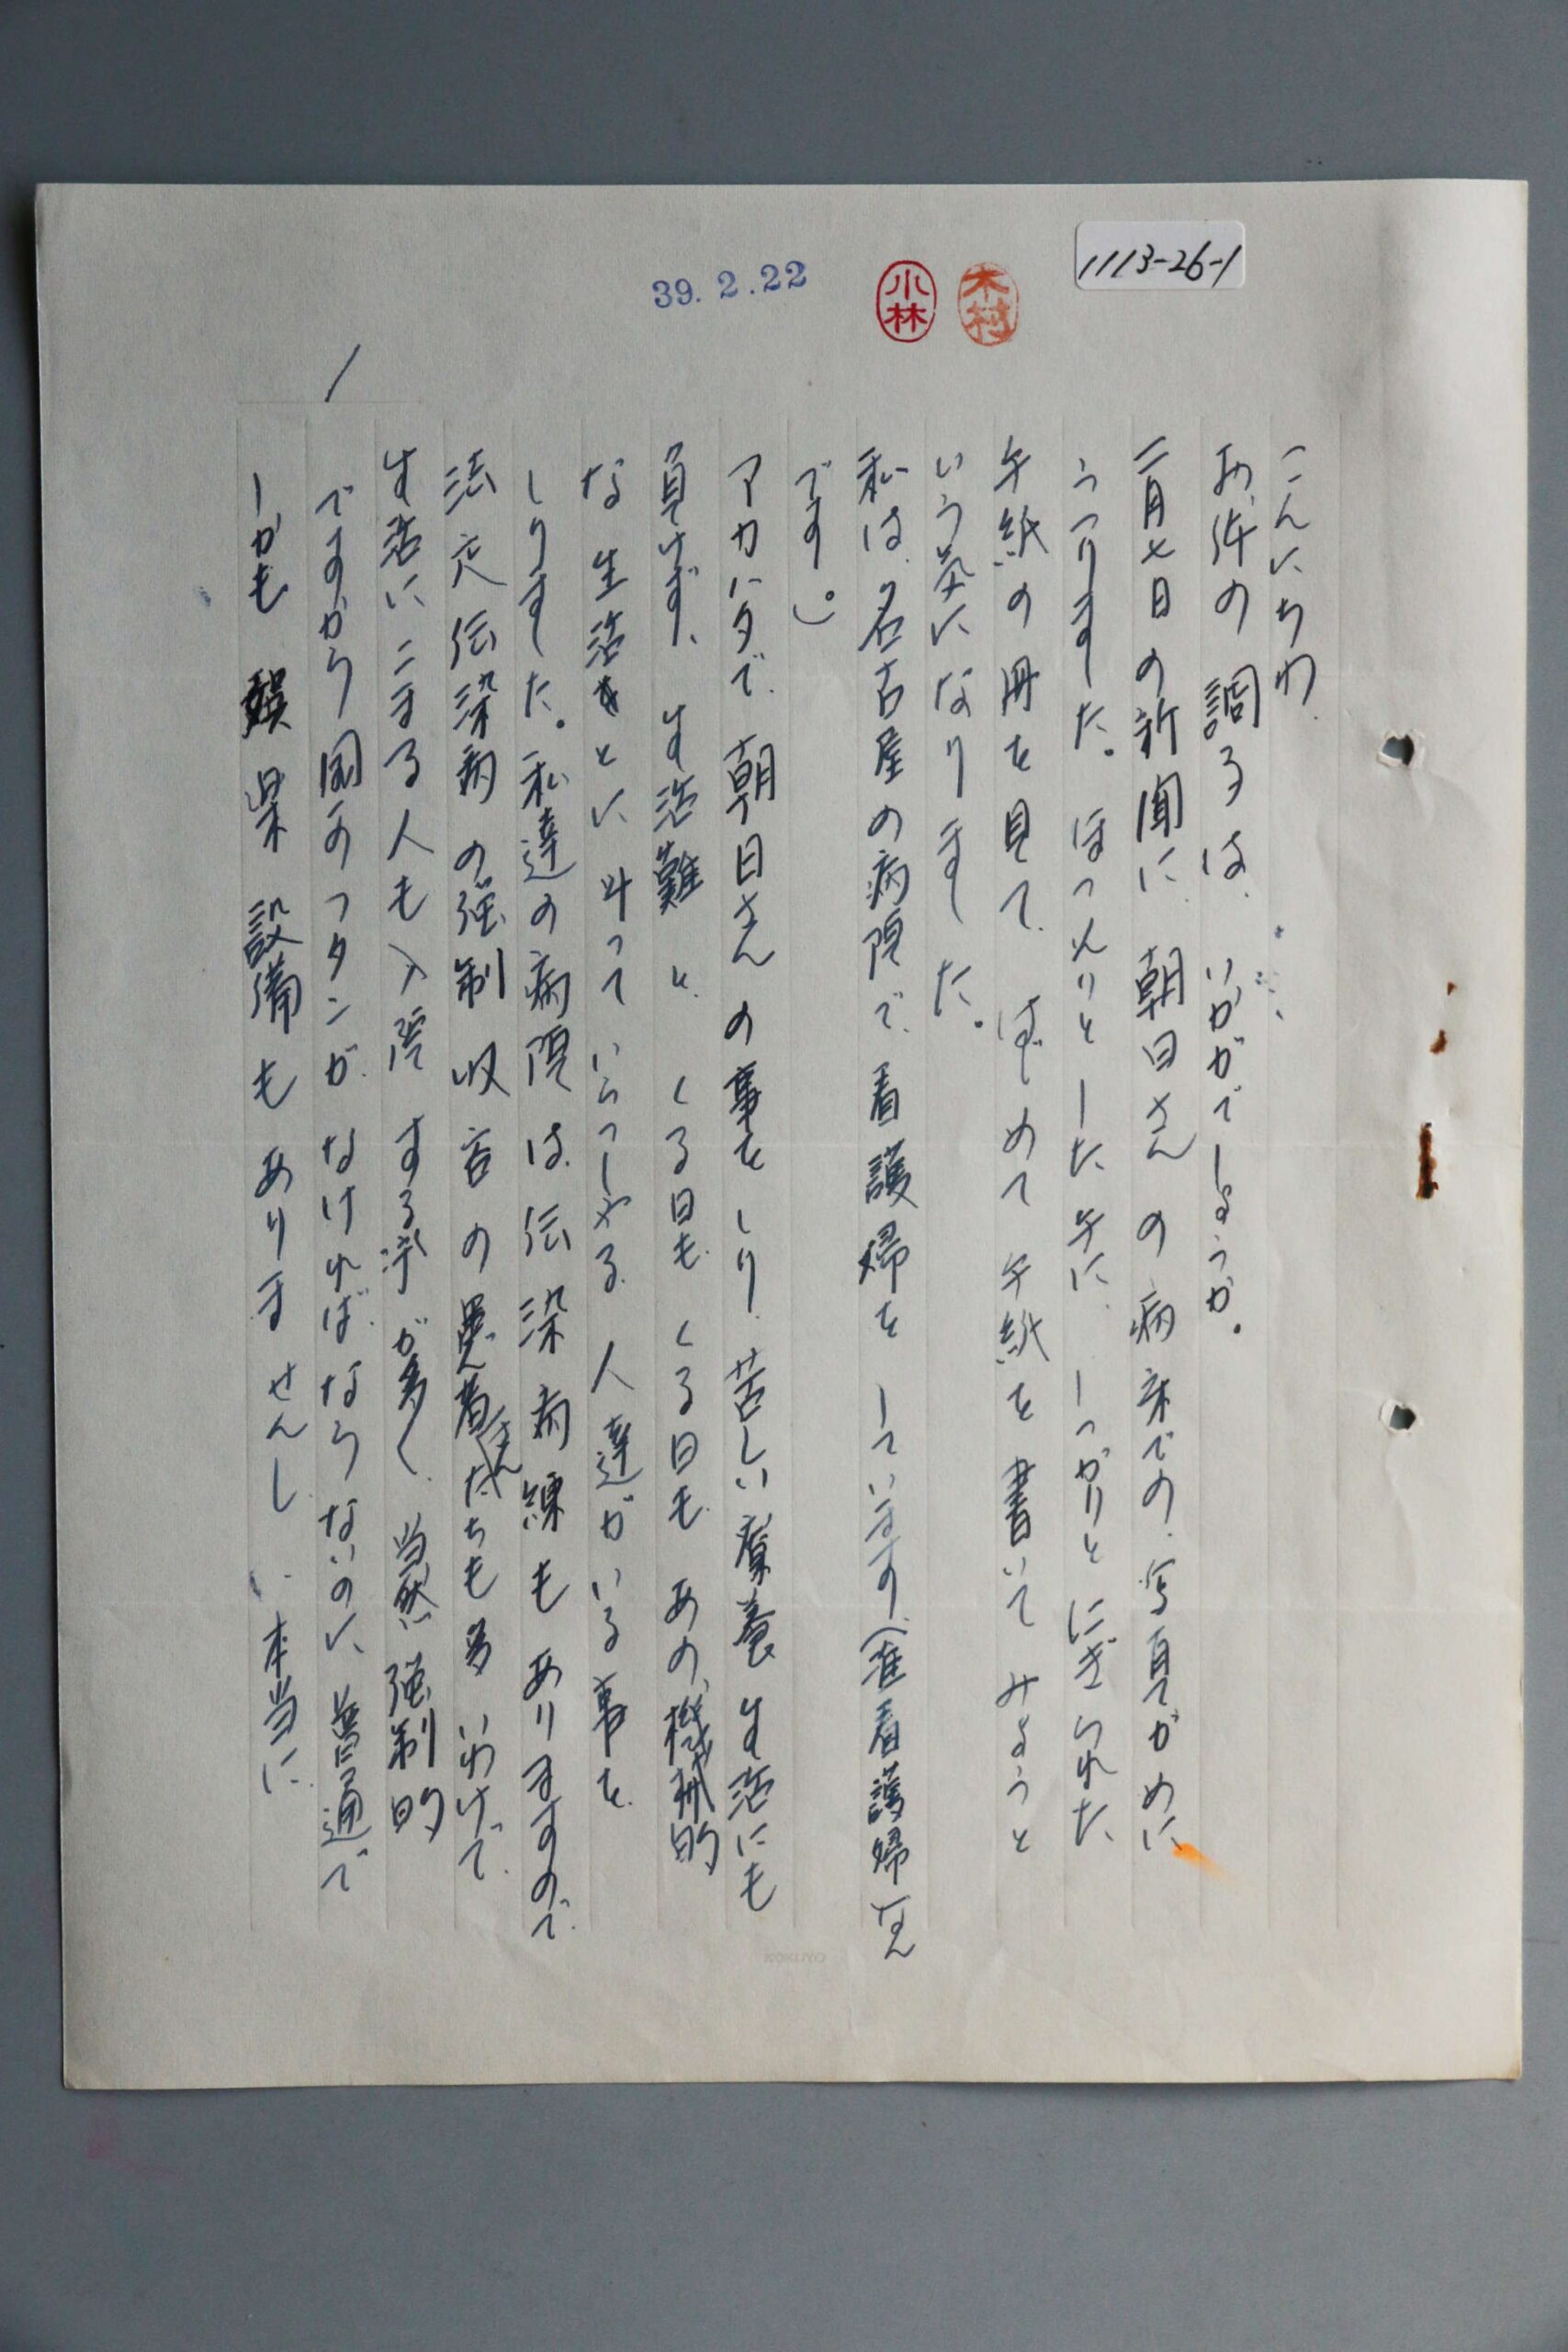 1113-26-1
木村
小林
39.2.22
こんにちわ.
お体の調子は、いかがでしょうか。
二月七日の新聞に、朝日さんの病床での、写真がめに
うつりました。ほっそりとした手に、しっかりとにぎられた、
手紙の冊を見て、はじめて手紙を書いてみようと
いう気になりました。
私は、名古屋の病院で、看護婦をしています(准看護婦なん
です。)
アカハタで、朝日さんの事をしり、苦しい療養生活にも
負けず、生活難と、くる日も、くる日も、あの、機械的
な生活をとい斗っていらっしゃる、人達がいる事を、
しりました。私達の病院は、伝染病練もありますので、
法定伝染病の強制収容の患者さんたちも多いわけで、
生活にこまる人も入院する率が多く、当然強制的
ですから国のフタンが、なければ、ならないのに、普通で
しかも娯楽設備もありませんし、本当に、
1